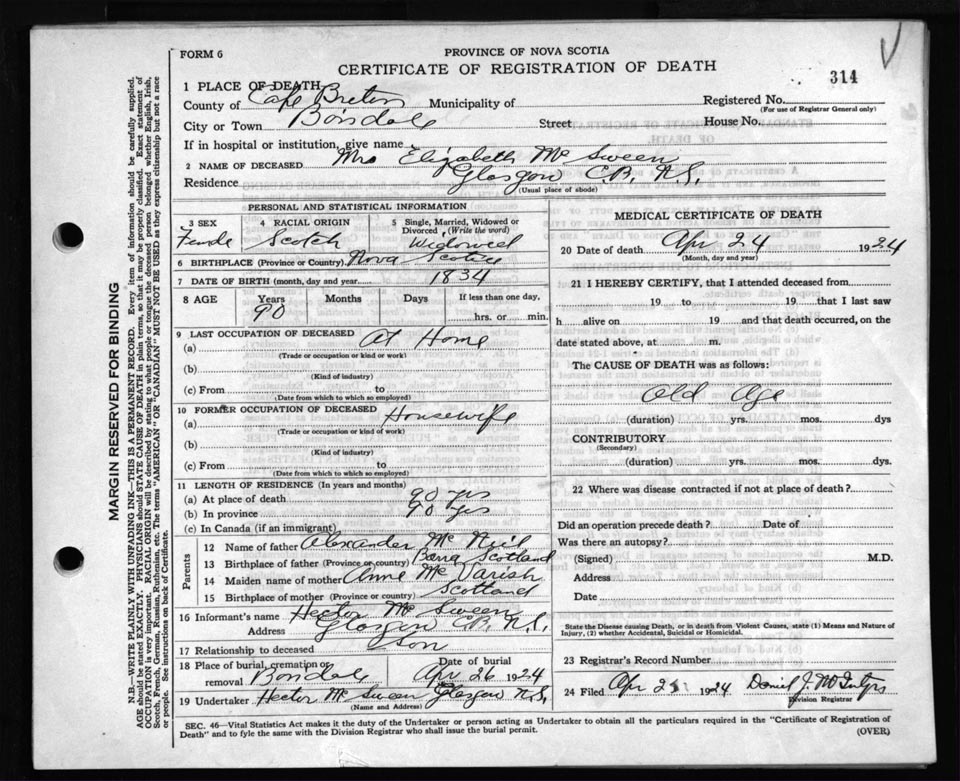 FORM 6
PROVINCE OF NOVA SCOTIA
CERTIFICATE OF REGISTRATION OF DEATH
314
1 PLACE OF DEATH
County of Cape Breton Municipality of Registered No.
(For use of Registrar General only)
City or Town Boisdale Street House No.
If in hospital or institution, give name
2 NAME OF DECEASED Mrs Elizabeth McSween
Residence Glasgow C.B. N.S.
(Usual place of abode)
PERSONAL AND STATISTICAL INFORMATION
3 SEX
4 RACIAL ORIGIN
5 Single, Married, Widowed or Divorced, (Write the word)
Female Scotch Widowed
6 BIRTHPLACE (Province or Country) Nova Scotia
7 DATE OF BIRTH (month, day and year) 1834
8 AGE Years Months Days If less than one day,
90 hrs. or min.
9 LAST OCCUPATION OF DECEASED At Home
(a)
(Trade or occupation or kind or work)
(b)
(Kind of industry)
(c) From to
(Date from which to which so employed)
10 FORMER OCCUPATION OF DECEASED Housewife
(a)
(Trade or occupation or kind of work)
(b)
(Kind of industry)
(c) From to
(Date from which to which so employed)
11 LENGTH OF RESIDENCE (In years and months)
(a) At place of death 90 yrs
(b) In province 90 yrs
(c) In Canada (if an immigrant)
Parents
12 Name of father Alexander McNeil
13 Birthplace of father (Province or country) Barra Scotland
14 Maiden name of mother Anne McVarish
15 Birthplace of mother (Province or country) Scotland
16 Informant's name Hector McSween
Address Glasgow C.B. N.S.
17 Relationship to deceased Son
18 Place of burial, cremation or removal Boisdale
Date of burial Apr 26 1924
19 Undertaker Hector McSween Glasgow N.S.
(Name and Address)
MEDICAL CERTIFICATE OF DEATH
20 Date of death Apr 24 1924
(Month, day and year)
21 I HEREBY CERTIFY, that I attended deceased from
19 to 19 that I last saw
h alive on 19 and that death occurred, on the
date stated above, at m.
The CAUSE OF DEATH was as follows:
Old Age
(duration) yrs. mos. dys
CONTRIBUTORY
(Secondary)
(duration) yrs. mos. dys.
22 Where was disease contracted if not at place of death?
Did an operation precede death? Date of
Was there an autopsy?
(Signed) M.D.
Address
Date
State the Disease causing Death, or in death from Violent Causes, state (1) Means and Nature of
Injury, (2) whether Accidental, Suicidal or Homicidal.
23 Registrar's Record Number
24 Filed Apr 1924 Daniel J.
Division Registrar
SEC. 46—Vital Statistics Act makes it the duty of the Undertaker or person acting as Undertaker to obtain all the particulars required in the "Certificate of Registration of
Death" and to fyle the same with the Division Registrar who shall issue the burial permit.
(OVER)
MARGIN RESERVED FOR BINDING
N.B.—WRITE PLAINLY WITH UNFADING INK—THIS IS A PERMANENT RECORD. Every item of information should be carefully supplied.
AGE should be stated EXACTLY. PHYSICIANS should STATE CAUSE OF DEATH in plain terms, so that it may be properly classified. Exact statement of
OCCUPATION is very important. RACIAL ORIGIN will be described by stating to what people or tongue the deceased person belonged whether English, Irish,
Scotch, French, German, Russian, Ruthenian, etc. The terms "AMERICAN" or "CANADIAN" MUST NOT BE USED as they express citizenship but not a race
or people. See instructions on back of Certificate.